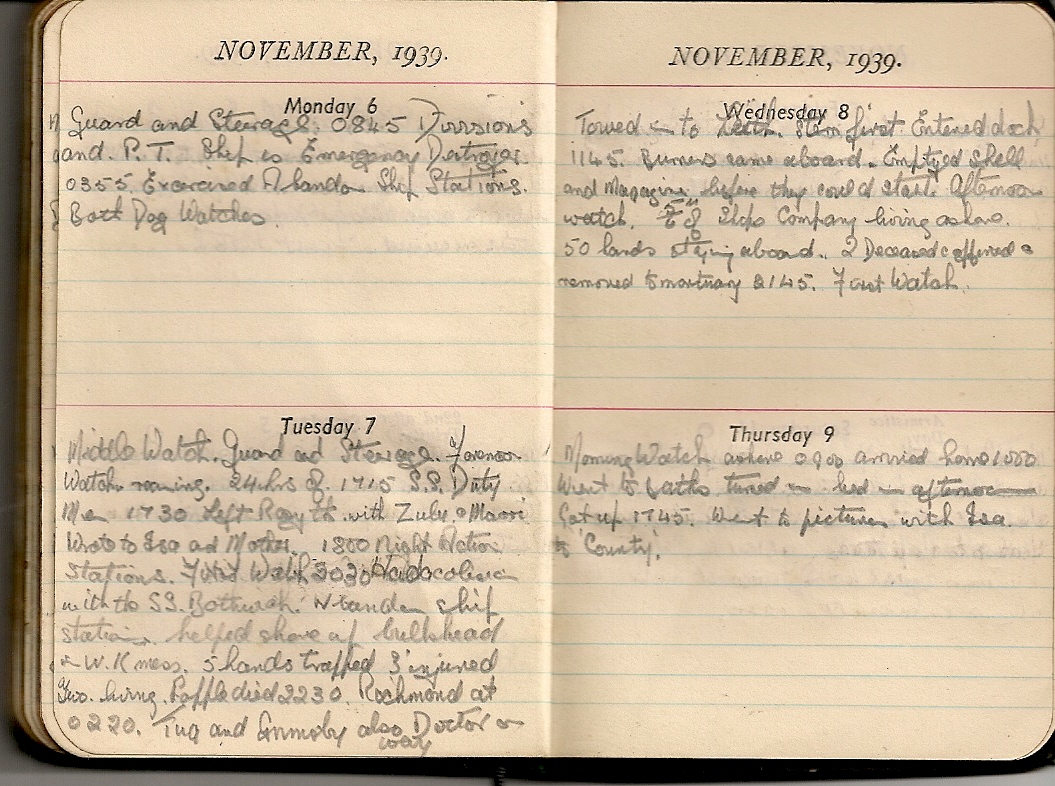 NOVEMBER, 1939.
Monday 6
Guard and Steerage. 0845 Divisions
and P.T. Ship is Emergency Destroyer.
0355 Exercised Abandon Ship Stations.
Both Dog Watches.
Tuesday 7
Middle Watch. Guard and Steerage. Forenoon
Watch. 24hrs 1715 S.S. Duty
Men 1730 Left Rosyth with Zulu & Maori
Wrote to Isa and Mother. 1800 Night Action
Stations. First Watch 2030 Had a collision
with the SS. Bothwick. Abandon ship
stations. helped shore up bulkhead
in W.K mess. 5 hands trapped 3 injured
two. living. died 2230. Richmond at
0220. Tug and Grimsby also Doctor on
way
NOVEMBER, 1939.
Wednesday 8
Towed in to Leith. Stern first Entered dock
1145. Burners came aboard. Emptyed shell
and Magazine before they could start. Afternoon
watch. Ships Company living ashore.
50 hands staying aboard. 2 Deceased coffined &
removed to mortuary 2145. First Watch.
Thursday 9
Morning Watch ashore 0900 arrived home 1000
Went to baths turned in bed in afternoon
Got up 1745. Went to pictures with Isa.
to 'County'.